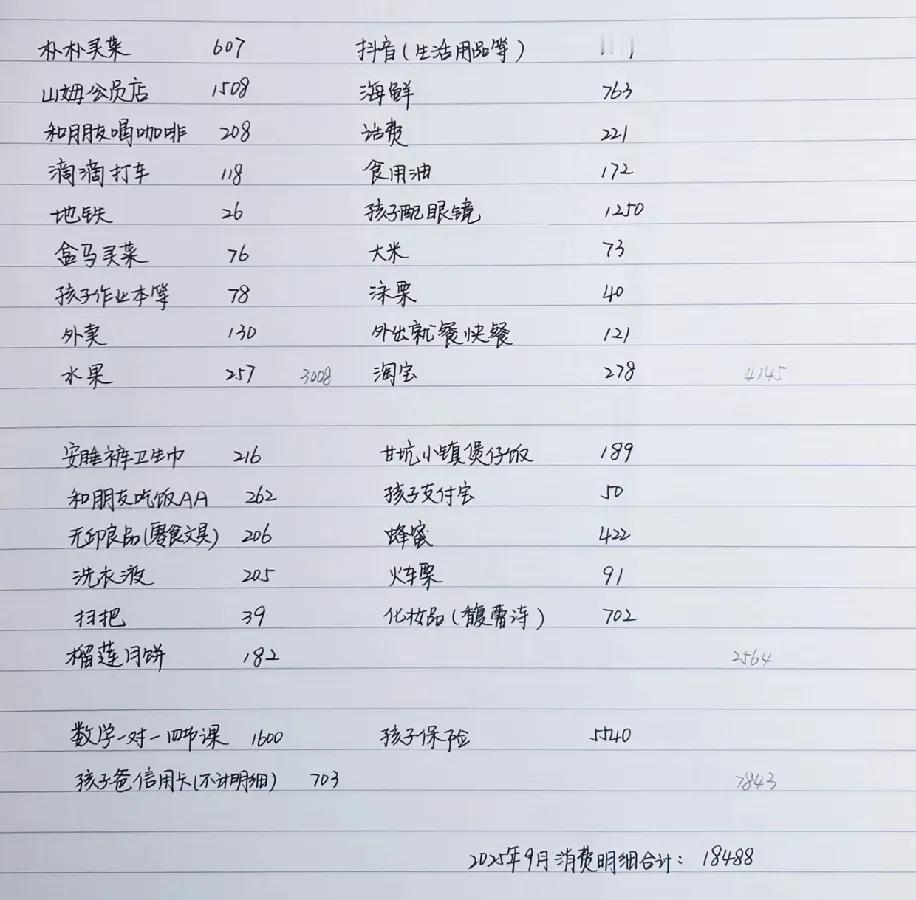 朴朴买菜 607 抖音(生活用品等)
山姆会员店 1508 海鲜 763
和朋友喝咖啡 208 话费 221
滴滴打车 118 食用油 172
地铁 26 孩子配眼镜 1250
盒马买菜 76 大米 73
孩子作业本等 78 泳票 40
外卖 130 外出就餐快餐 121
水果 257 3008 淘宝 278 4145
安睡裤卫生巾 216 甘坑小镇煲仔饭 189
和朋友吃饭AA 262 孩子支付宝 50
无印良品(零食文具) 206 蜂蜜 422
洗衣液 205 火车票 91
扫把 39 化妆品(馥蕾诗) 702
榴莲月饼 182 2564
数学一对一四节课 1600 孩子保险 5540
孩子爸信用卡(不计明细) 703 7843
2025年9月消费明细合计: 18488